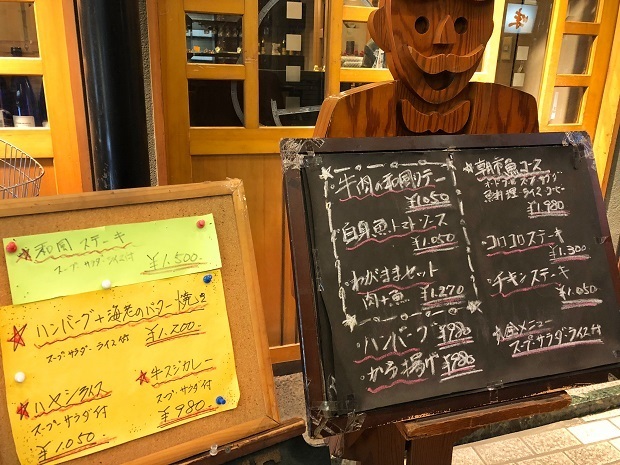 和風ステーキ
スープ・サラダ・ライス付 ¥1.500
ハンバーグ+海老のバター焼き
スープ サラダ ライス付 ¥1.200
ハヤシライス
スープ サラダ付
¥1.050
牛スジカレー
スープ サラダ付
¥980
牛肉の和風ソテー
¥1.050
白身魚トマトソース
¥1.050
わがままセット
肉+魚 ¥1.270
ハンバーグ ¥980
から揚げ ¥980
朝市魚コース
オードブル スープ サラダ
魚料理・ライス コーヒー
¥1.980
コロコロステーキ
¥1.300
チキンステーキ
¥1.050
全メニュー
スープ サラダ ライス付